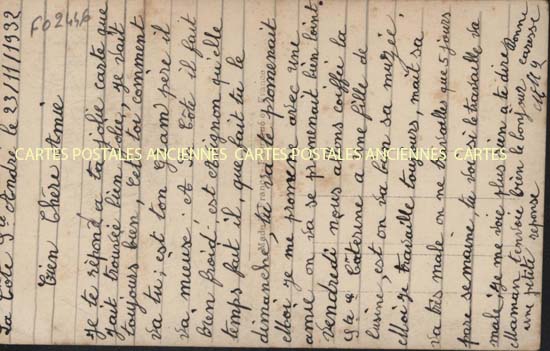 La Côte St André le 23/11/1932
F02446
Bien Chère Amie
Je te répond a ta jolie carte que
j'ait trouvée bien jolie, je vait
toujours bien, et toi comment
va tu; est ton Gran père il
va mieux. A la Côte il fait
bien froid est Avignon qu'elle
temps fait il, que fait tu le
dimanche, tu va te promenait
Moi je me promene avec une
amie on va se promenait bien loint
Vendredi nous avons coiffu la
Ste Caterine a une fille de
l'usine, est on va loui sa muzie,
Moi je travaille toujours, mait sa
va très male on ne travalles que 5 jours
pare semaine, tu vois si le travaille va
male, je me voie plus bien a te dire
Maman t'envoie bien le bonjour
une petite réponse
Bonne
caresse
CARTES POSTALES ANCIENNES CARTES POSTALES ANCIENNES CARTES POSTALES ANCIENNES
Made in France